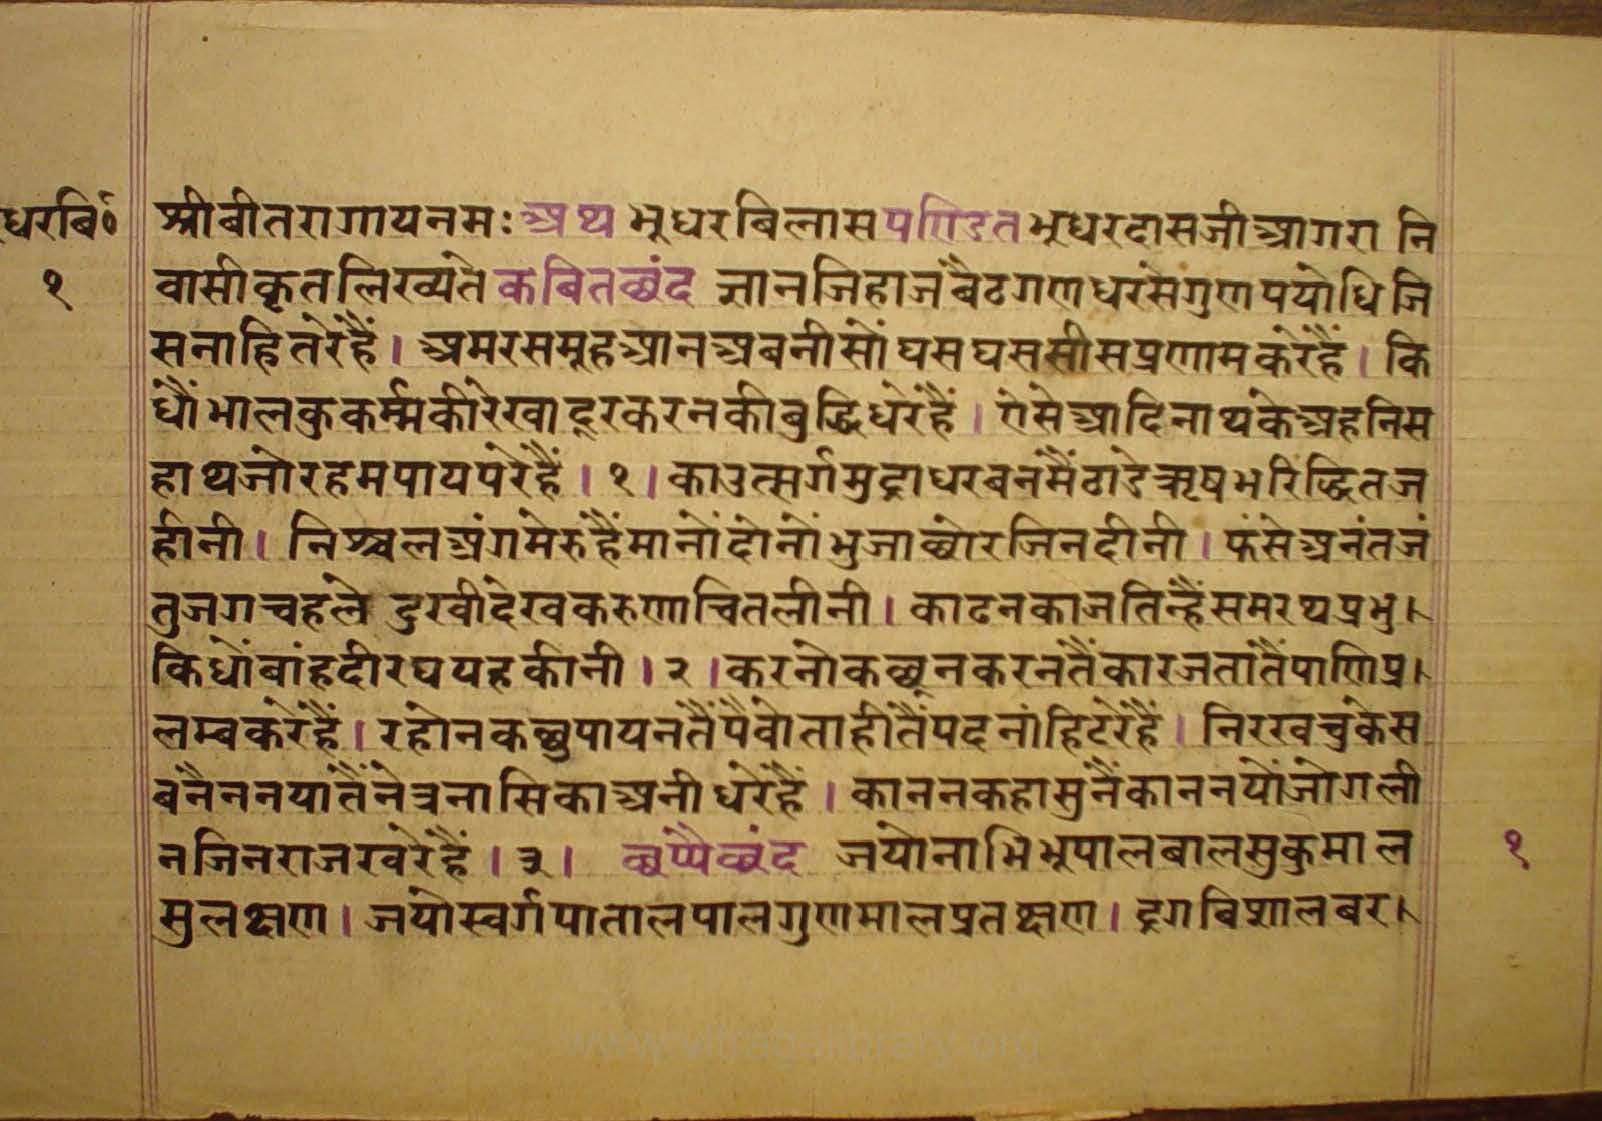 धरबि॰
१
श्रीबीतरागायनमः अथ भूधरबिलास पण्डित भूधरदासजीआगरा नि
वासीकृतलिख्यते कबितछंद ज्ञानजिहाजबैठगणधरसेगुणपयोधिजि
सनाहितरेहैं। अमरसमूहआनअबनीसोंघसघससीसप्रणामकरेहैं। कि
धौंभालकुकर्म्मकीरेखादूरकरनकीबुद्धिधरेहैं। ऐसेआदिनाथकेअहनिस
हाथजोरहमपायपरेहैं। १। काउत्सर्गमुद्राधरबनमैंठाडेऋषभरिद्धितज
हीनी। निश्चलअंगमेरुहैंमानोंदोनोंभुजाछोरजिनदीनी। फंसेअनंतजं
तुजगचहले दुखीदेखकरुणाचितलीनी। काढनकाजतिन्हैंसमरथप्रभु।
किधोंबांहदीरघयहकीनी। २। करनोकछूनकरनतैंकारजतातैंपाणिप्र।
लम्बकरेहैं। रहोनकछुपायनतैंपैवोताहीतैंपदनांहिटरेहैं। निरखचुकेस
बनैननयातैंनेत्रनासिकाअनीधरेहैं। काननकहासुनैंकाननयोंजोगली
नजिनराजखरेहैं। ३। छप्पैछंद जयोनाभिभूपालबालसुकुमाल
सुलक्षण। जयोस्वर्गपातालपालगुणमालप्रतक्षण। द्रगबिशालबर।
१
www.vitragalibrary.org